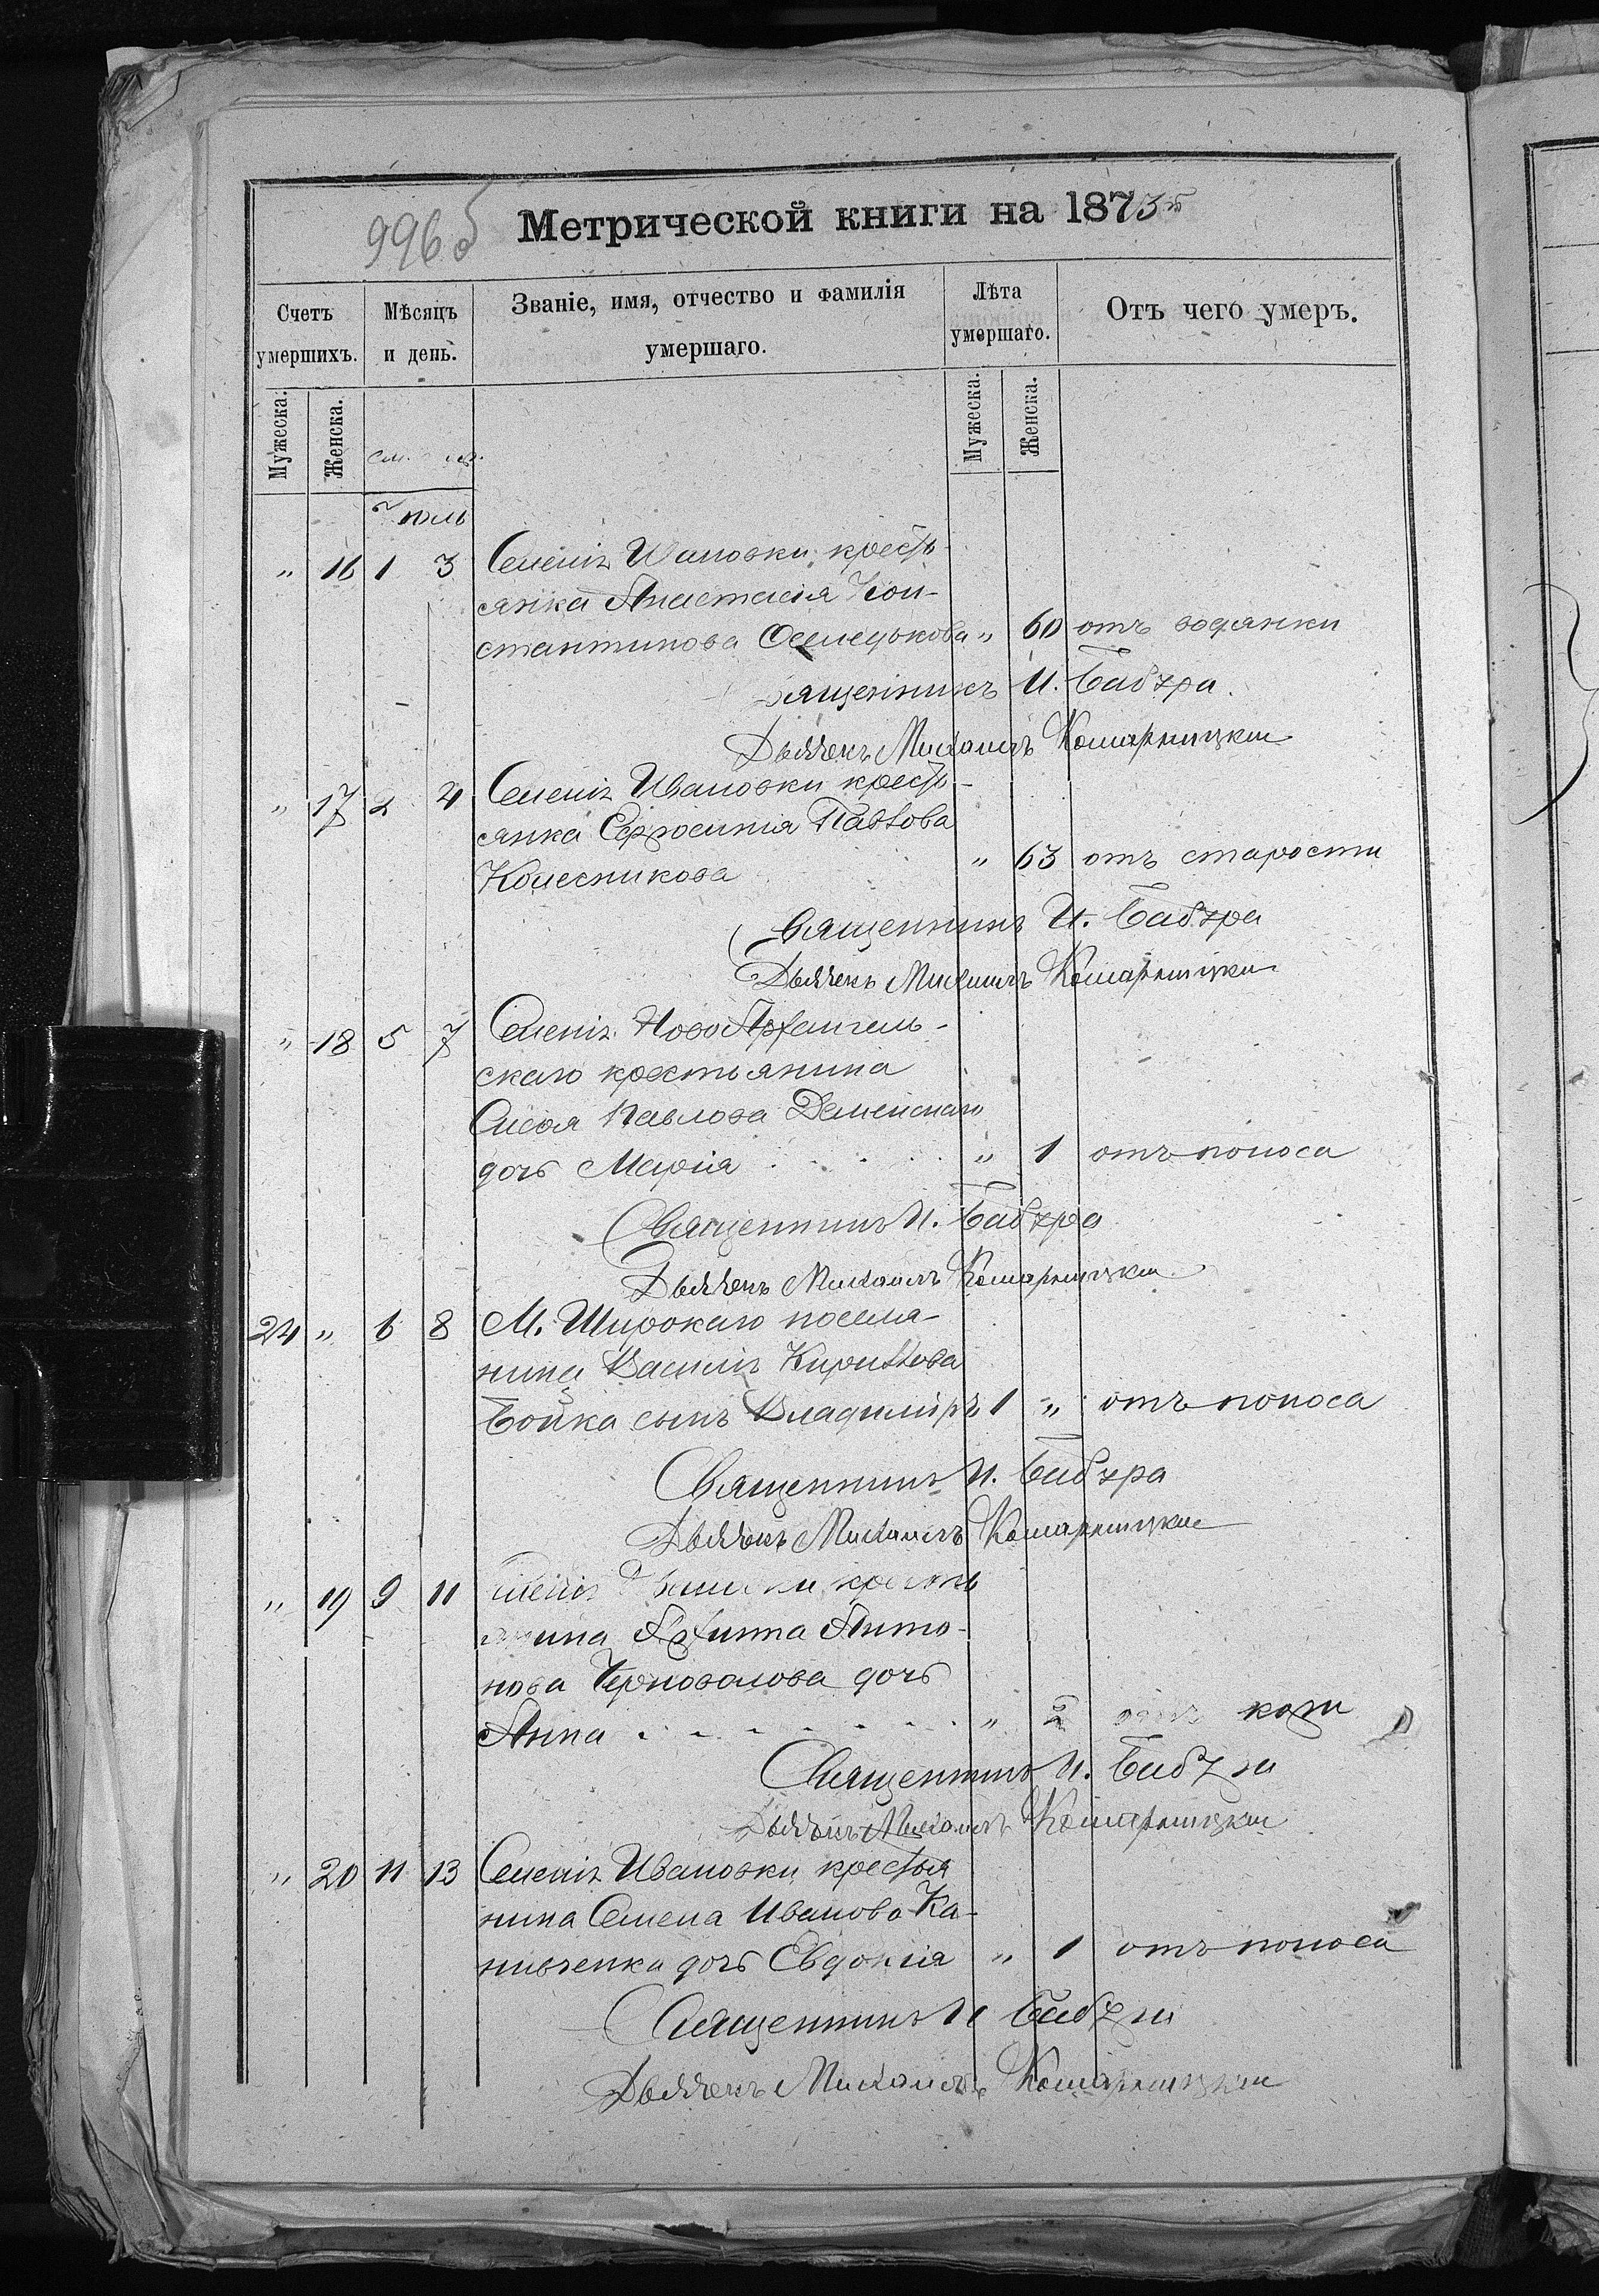 996 об
Метрической книги на 1873й
Счетъ умершихъ.
Мѣсяцъ и день.
Званіе, имя, отчество и фамилія умершаго.
Лѣта умершаго.
Отъ чего умеръ.
Мужеска.
Женска.
Мужеска.
Женска.
Іюль
" 16 1 3 Селенія Ивановки кресть-
янка Анастасія Кон-
стантинова " 60 отъ водянки
Священникъ И. Бабура
Дьячекъ Михаилъ Комарницкій
" 17 2 4 Селенія Ивановки кресть-
янка Евфросинія Павлова
Колесникова " 63 отъ старости
Священникъ И. Бабура
Дьячекъ Михаилъ Комарницкій
" 18 5 7 Селенія НовоАрхангель-
скаго крестьянина
Павлова
дочь Марія " 1 отъ поноса
Священникъ И. Бабура
Дьячекъ Михаилъ Комарницкій
24 " 6 8 М. Широкаго поселя-
нина Василія Кириллова
Бойка сынъ Владиміръ 1 " отъ поноса
Священникъ И. Бабура
Дьячекъ Михаилъ Комарницкій
" 19 9 11 Селенія Ивановки кресть
янина Анто-
нова дочь
Анна " 2 отъ кори
Священникъ И. Бабура
Дьячекъ Михаилъ Комарницкій
" 20 11 13 Селенія Ивановки крестья
нина Семена Иванова Ка-
нивченка дочь Евдокія " 1 отъ поноса
Священникъ И Бабура
Дьячекъ Михаилъ Комарницкій